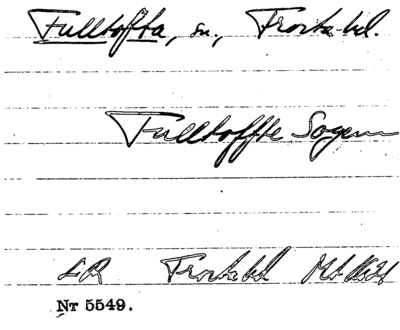 Fulltofta, sn., Frosta hd.
Fulltoffte Sogenn
LR Frosta hd
Nr 5549.